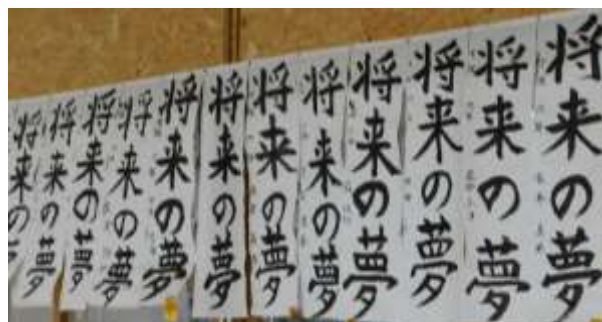 将来の夢
将来の夢
将来の夢
将来の夢
将来の夢
将来の夢
将来の夢
将来の夢
将来の夢
将来の夢
将来の夢
将来の